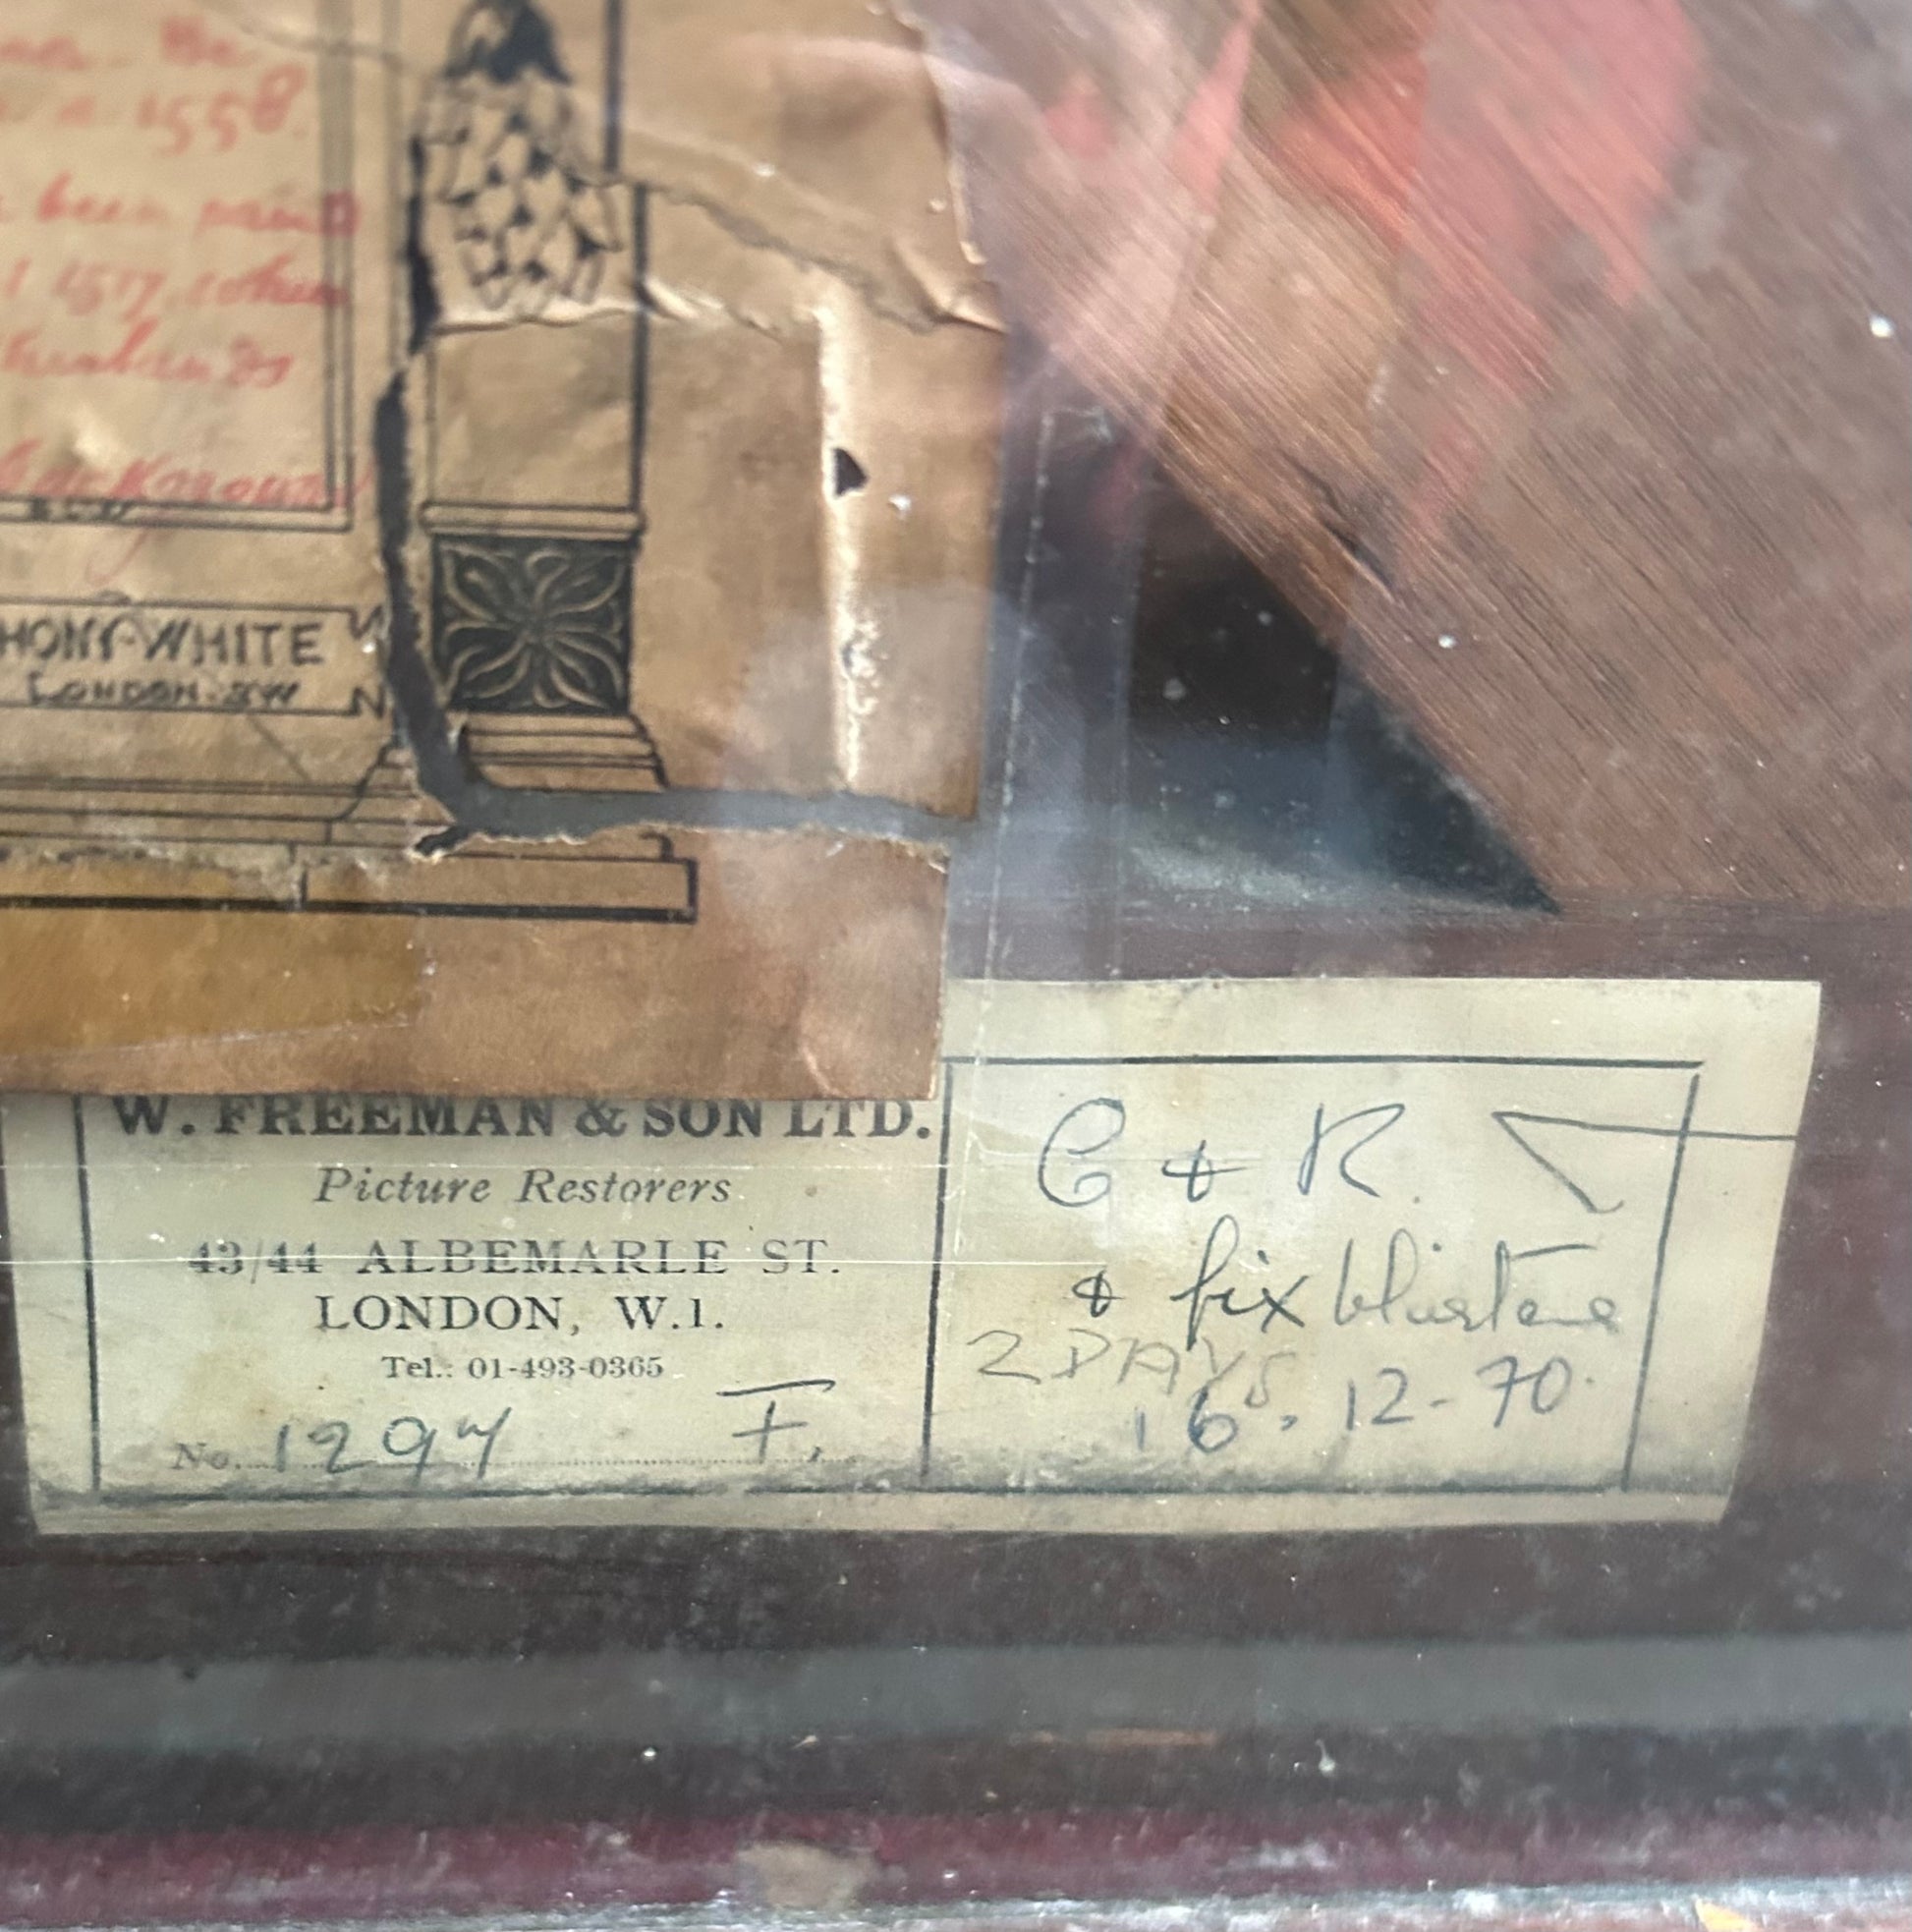 1558.
been
1517 when
HONY WHITE
LONDON. SW
N
W. FREEMAN & SON LTD.
Picture Restorers
43/44 ALBEMARLE ST.
LONDON, W.1.
Tel.: 01-493-0365
No. 1294 F.
C & R.
& fix blisters
2 DAYS
16. 12-70.